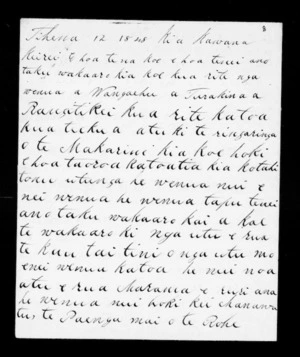 Tihema 12 1848 Kia Kawana
Kerei E hoa tena koe e hoa tenei ano
taku wakaaro kia koe kua rite nga
wenua a Wangaehu a Turakina a
Rangitikei kua rite katoa
kua tukua atu ki te ringaringa
o te Makarini kia koe hoki
e hoa katoatia kia kotahi
tonu utunga he wenua nui e
nei wenua he wenua tapu tenei
ano taku wakaaro kai a koe
te wakaaro ki nga utu e rua
te kau tai tini o nga utu mo
enei wenua katoa he mei noa
utu e rua Marama e ruri ana
he wenua nui hoki kei Manawa
tu te Paenga mai o te Rohe